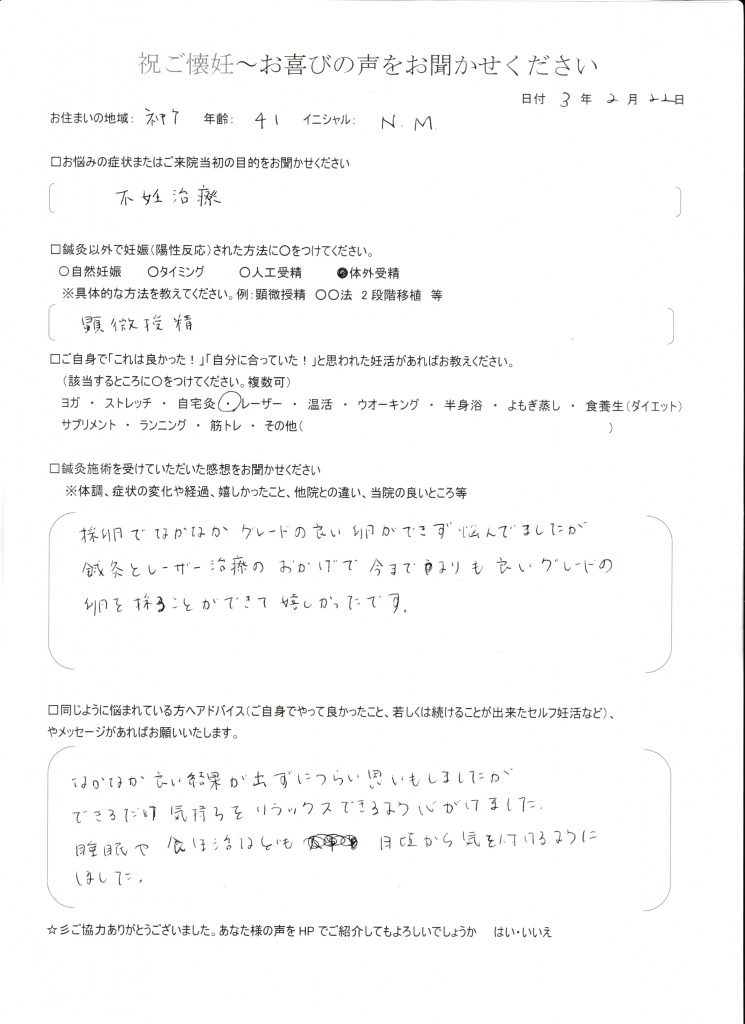 祝ご懐妊～お喜びの声をお聞かせください
日付 3 年 2 月 22日
お住まいの地域： 神戸 年齢： 41 イニシャル： N.M.
□お悩みの症状またはご来院当初の目的をお聞かせください
不妊治療
□鍼灸以外で妊娠（陽性反応）された方法に〇をつけてください。
〇自然妊娠 〇タイミング 〇人工受精 ●体外受精
※具体的な方法を教えてください。例：顕微授精 〇〇法 2段階移植 等
顕微授精
□ご自身で「これは良かった！」「自分に合っていた！」と思われた妊活があればお教えください。
（該当するところに〇をつけてください。複数可）
ヨガ ・ ストレッチ ・ 自宅灸 ・ レーザー ・ 温活 ・ ウオーキング ・ 半身浴 ・ よもぎ蒸し ・ 食養生（ダイエット）
サプリメント ・ ランニング ・ 筋トレ ・ その他（ ）
□鍼灸施術を受けていただいた感想をお聞かせください
※体調、症状の変化や経過、嬉しかったこと、他院との違い、当院の良いところ等
採卵でなかなかグレードの良い卵ができず悩んでましたが
鍼灸とレーザー治療のおかげで今までよりも良いグレードの
卵を採ることができて嬉しかったです。
□同じように悩まれている方へアドバイス（ご自身でやって良かったこと、若しくは続けることが出来たセルフ妊活など）、
やメッセージがあればお願いいたします。
なかなか良い結果が出ずにつらい思いもしましたが
できるだけ気持ちをリラックスできるよう心がけました。
睡眠や食生活なども 日頃から気を付けるように
しました。
☆彡ご協力ありがとうございました。あなた様の声をHPでご紹介してもよろしいでしょうか はい・いいえ